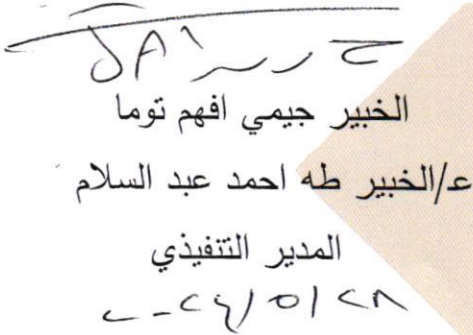 الخبير جيمي افهم توما
ع/الخبير طه احمد عبد السلام
المدير التنفيذي
٢٠٢٤/٥/٢٨